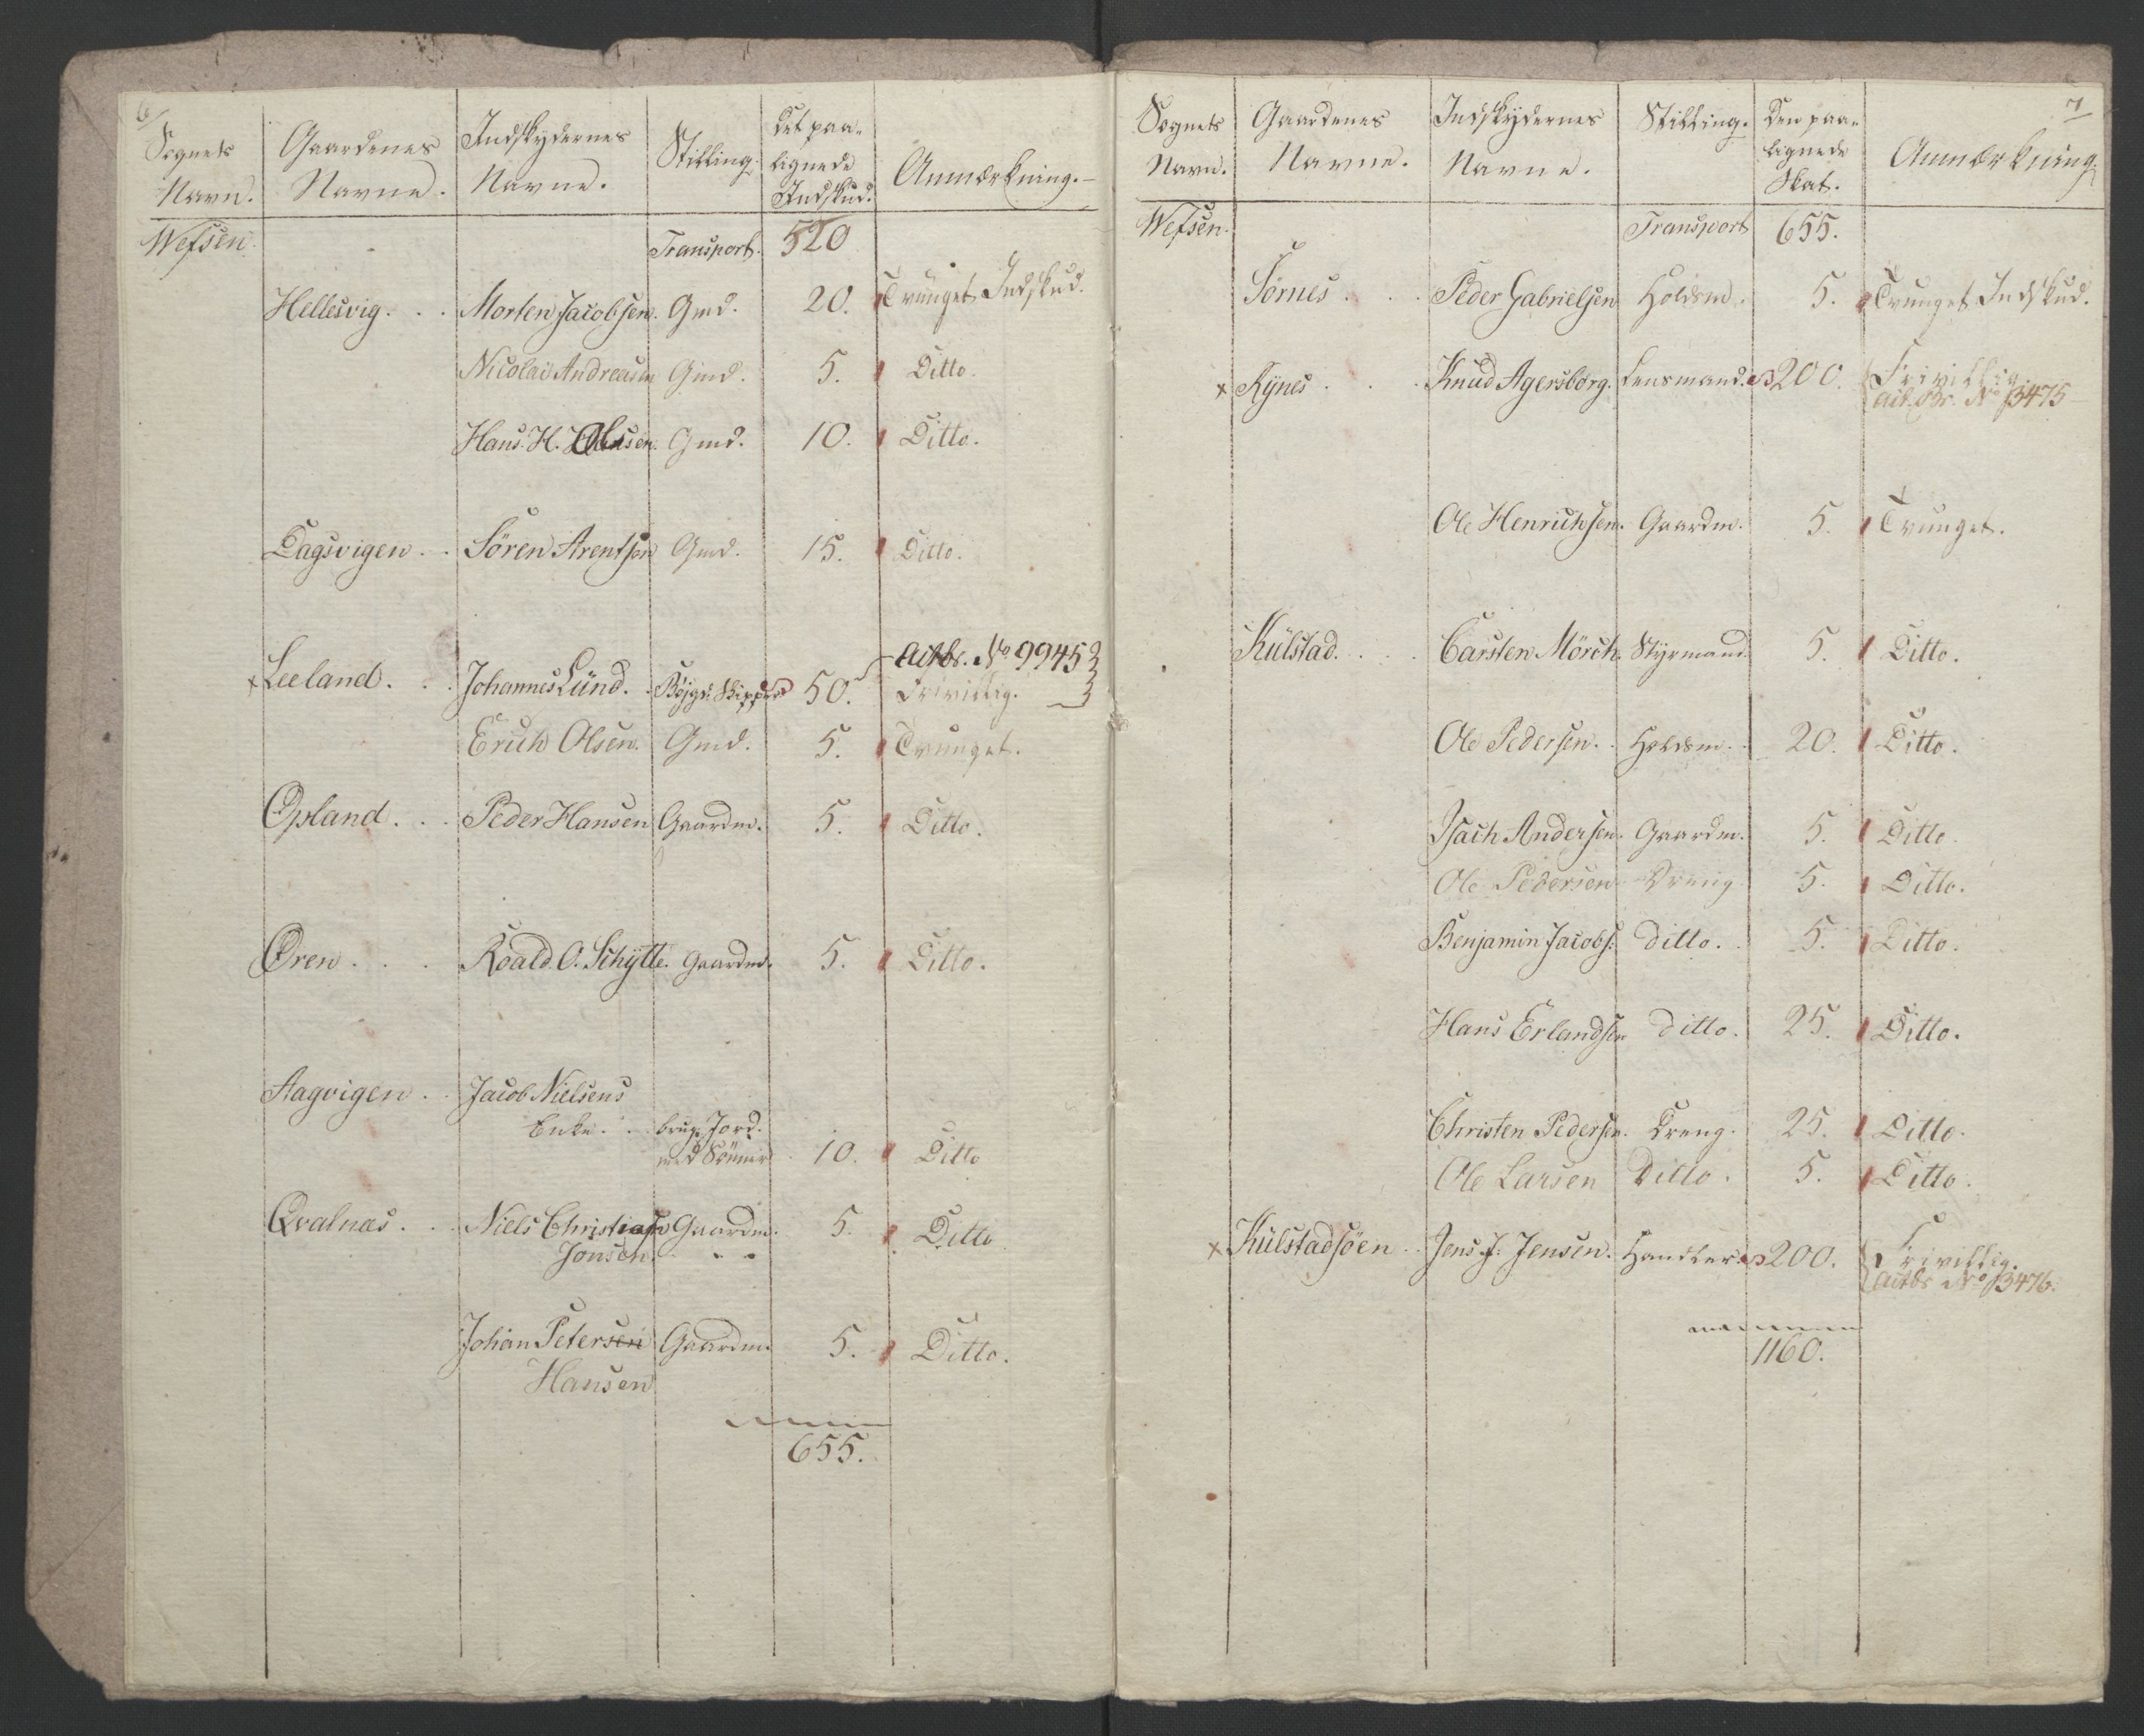 6/
Sognets Navn. Gaardenes Navne. Indskydernes Navne. Stilling. Det paalignede Indskud. Anmærkning.
Wefsen. Transport. 520
Hellesvig. Morten Jacobsen. Gmd. 20. Tvunget Indskud.
Nicolai Andreasen Gmd. 5. Ditto.
Hans H. Olsen. Gmd. 10. Ditto.
Dagsvigen. Sören Arentsen Gmd. 15. Ditto.
Actbr. No 9945
x Leeland. Johannes Lünd. Böjgde Skipper 50. Frivillig.
Erich Olsen. Gmd. 5. Tvunget.
Opland. Peder Hansen Gaardm. 5. Ditto.
Øren. Roald O. Schÿtte. Gaardm. 5. Ditto.
Aagvigen. Jacob Nielsens
Enke. brug. Jord.
med Sönner 10. Ditto
Qvalnæs. Niels Christian Gaardm. 5. Ditto
Jonsen.
Johan Petersen Gaardm. 5. Ditto.
Hansen
655.
7
Sognets Navn. Gaardenes Navne. Indskydernes Navne. Stilling. Den paalignede Skat. Anmærkning.
Wefsen. Transport 655.
Sörnes. Peder Gabrielsen Holdsm. 5. Tvunget Indskud.
x Rÿnes. Knud Agersborg. Lensmand. 200. Frivillig
Act. Br. No 13475
Ole Henrichsen. Gaardm. 5. Tvunget.
Külstad. Carsten Mörch. Styrmand. 5. Ditto.
Ole Pedersen. Holdsm. 20. Ditto.
Isach Andersen. Gaardm. 5. Ditto.
Ole Pedersen Dreng 5. Ditto.
Benjamin Jacobs: ditto. 5. Ditto.
Hans Erlandsen ditto. 25. Ditto.
Christen Pedersen. Dreng. 25. Ditto.
Ole Larsen Ditto. 5. Ditto.
x Külstadsöen Jens J: Jensen. Handler 200. Frivillig.
Actbr No 13476.
1160.